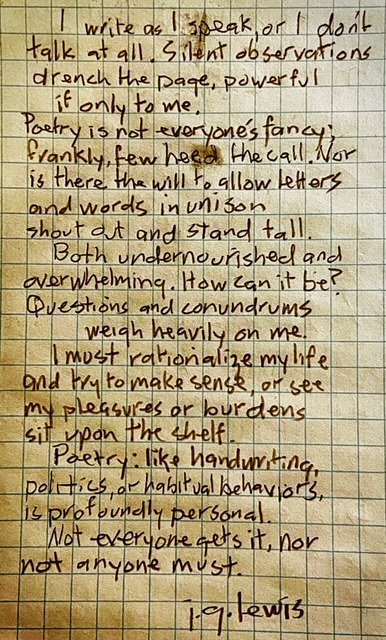 I write as I speak, or I don't
talk at all. Silent observations
drench the page, powerful
if only to me.
Poetry is not everyone's fancy;
frankly, few heed the call. Nor
is there the will to allow letters
and words in unison
shout out and stand tall.
Both undernourished and
overwhelming. How can it be?
Questions and conundrums
weigh heavily on me.
I must rationalize my life
and try to make sense, or see
my pleasures or burdens
sit upon the shelf.
Poetry: like handwriting,
politics, or habitual behaviors,
is profoundly personal.
Not everyone gets it, nor
not anyone must.
j.g.lewis